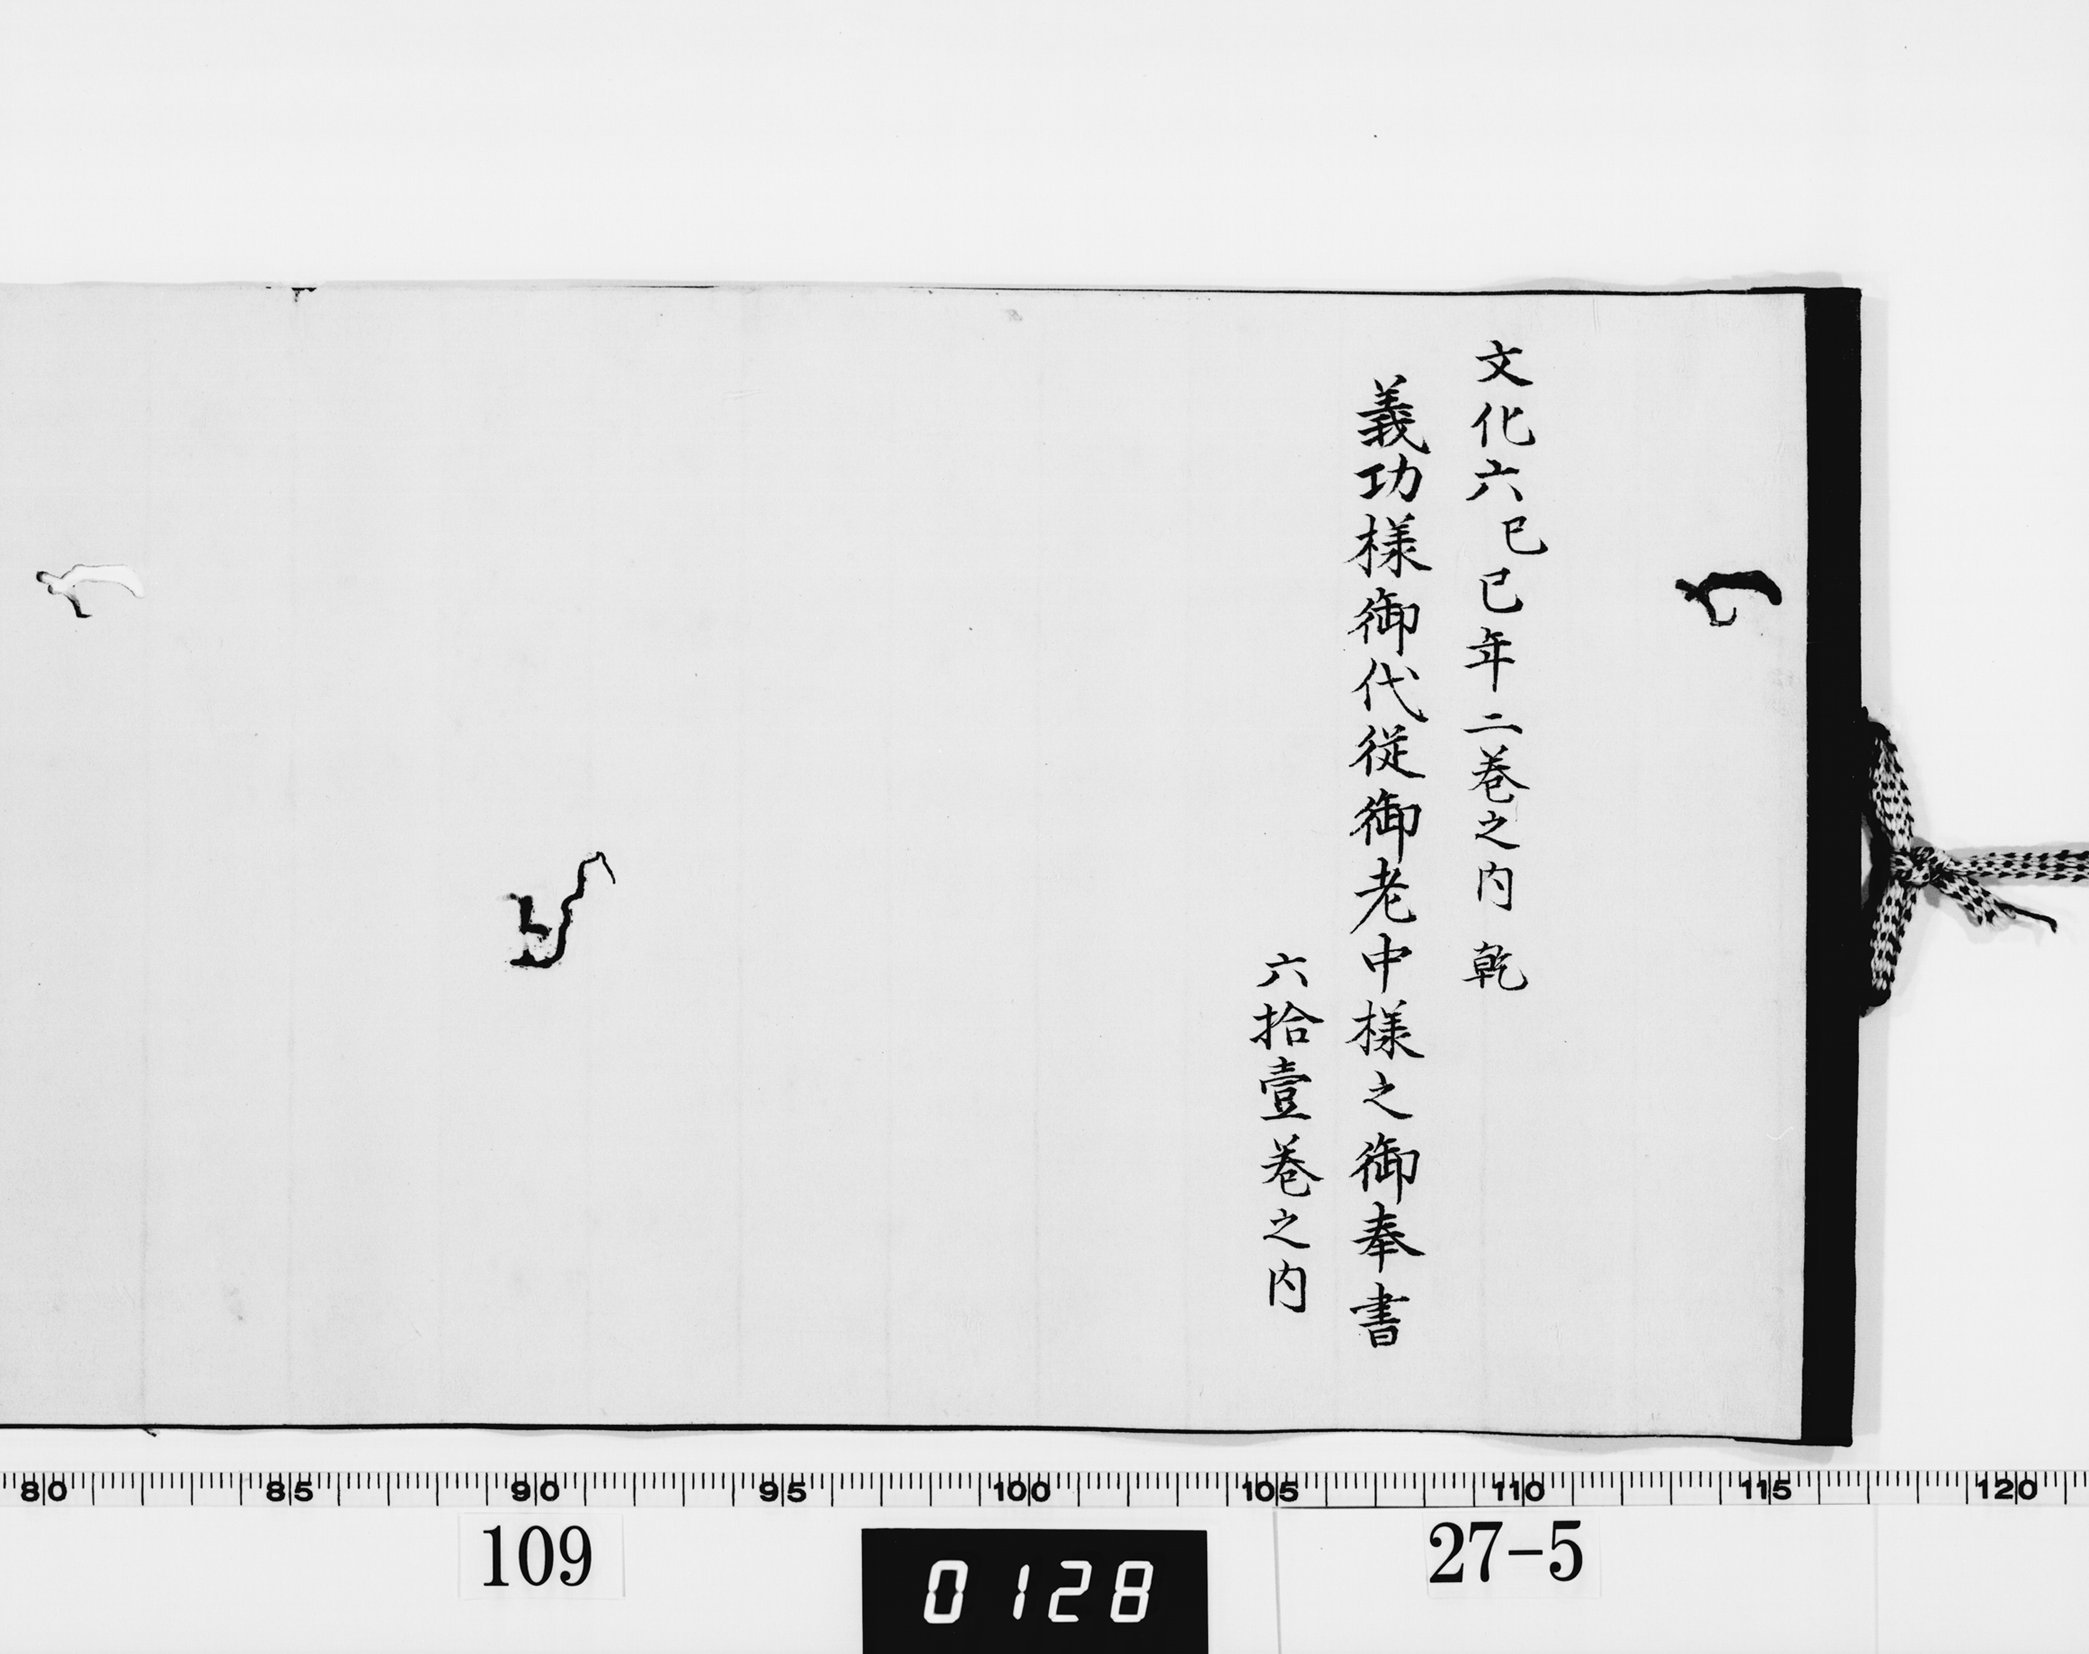 文化六己巳年二巻之内 乾
義功様御代従御老中様之御奉書
六拾壹巻之内
80 85 90 95 100 105 110 115 120
109
0128
27-5